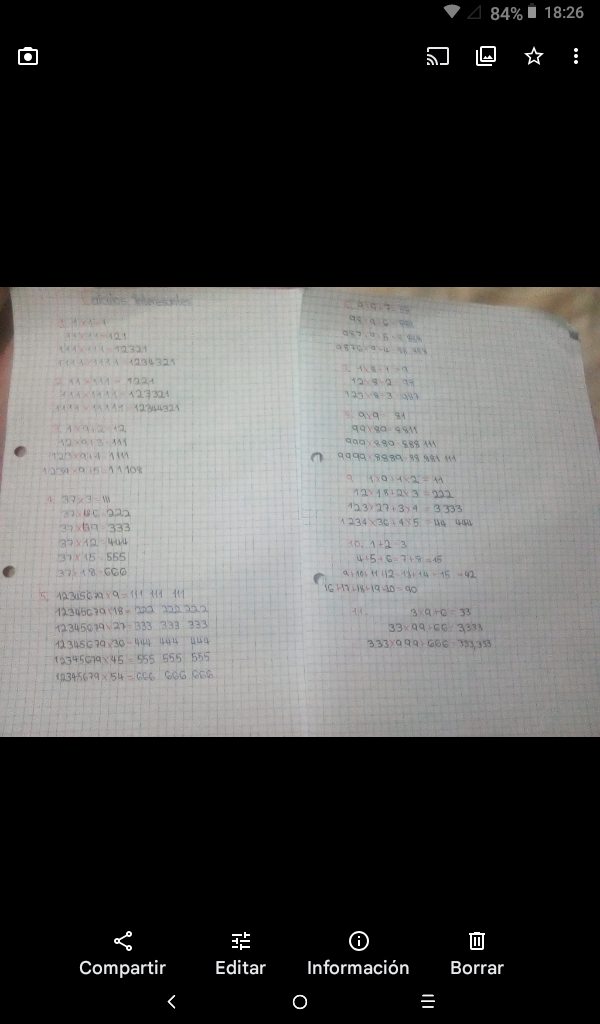 84% 18:26
Calculos Interesantes
1. 1×1=1
11×11=121
111×111=12321
1111×1111=1234321
2. 11×111=1221
1111×111=123321
1111×11111=12344321
3. 1×9+2=12
12×9+3=111
123×9+4=1111
1234×9+5=11108
4. 37×3=111
37×6=222
37×9=333
37×12=444
37×15=555
37×18=666
5. 12345679×9=111 111 111
12345679×18=222 222 222
12345679×27=333 333 333
12345679×30=444 444 444
12345679×45=555 555 555
12345679×54=666 666 666
7. 1×8+1=9
12×8+2=98
123×8+3=987
8. 9×9=81
99×89=8811
999×889=888 111
9999×8889=88 881 111
9. 1×9+1×2=11
12×18+2×3=222
123×27+3×4=3333
1234×36+4×5=44 444
10. 1+2=3
4+5+6=7+8=15
9+10+11+12=13+14+15=42
16+17+18+19+20=90
11. 3×9+6=33
33×99+66=3,333
333×999+666=333,333
Compartir
Editar
Información
Borrar